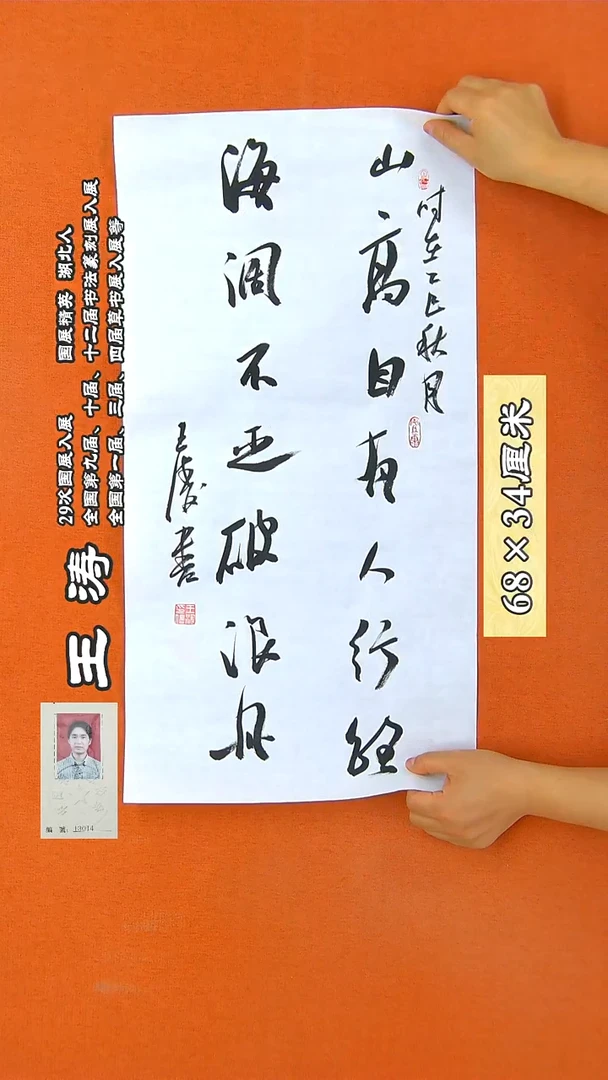 山高自有人行
时在乙巳秋月
海阔不乏破浪舟
王涛书
王涛
29次国展入展 国展精英 湖北人
全国第九届、十届、十二届书法篆刻展入展
全国第一届、三届、四届草书展入展等
68×34厘米